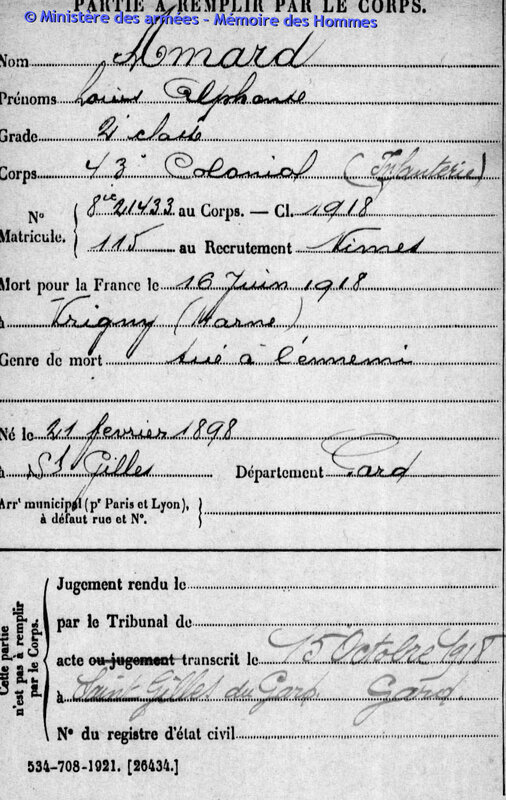 PARTIE À REMPLIR PAR LE CORPS.
© Ministère des armées - Mémoire des Hommes
Nom Amard
Prénoms Louis Alphonse
Grade 2e classe
Corps 43e Colonial (Infanterie)
No Matricule. 21433 au Corps. — Cl. 1918
115 au Recrutement Nimes
Mort pour la France le 16 Juin 1918
à Trigny (Marne)
Genre de mort tué à l'ennemi
Né le 21 fevrier 1898
à St Gilles Département Gard
Arrt municipal (pr Paris et Lyon),
à défaut rue et No.
Cette partie
n'est pas à remplir
par le Corps.
Jugement rendu le
par le Tribunal de
acte ou jugement transcrit le 15 Octobre 1918
à Saint Gilles du Gard Gard
No du registre d'état civil
534-708-1921. [26434.]